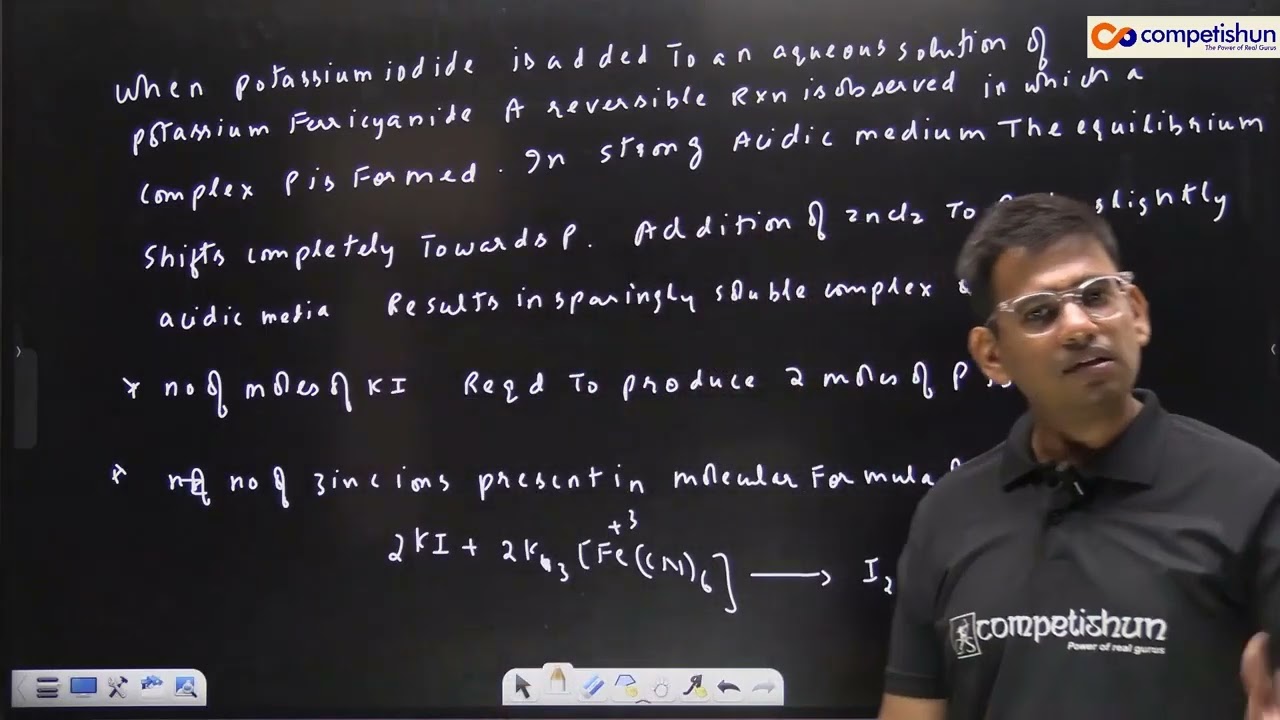 competishun
The Power of Real Gurus
When potassium iodide is added To an aqueous solution of
potassium Ferricyanide A reversible Rxn is observed in which a
complex P is Formed. In strong Acidic medium The equilibrium
shifts completely Towards P. Addition of ZnCl2 To slightly
acidic media Results in sparingly soluble complex
* no of moles of KI Reqd To produce 2 moles of P
* no of zinc ions present in molecular Formula
2KI + 2K3[Fe(CN)6] ⟶ I2
+3
competishun
Power of real gurus